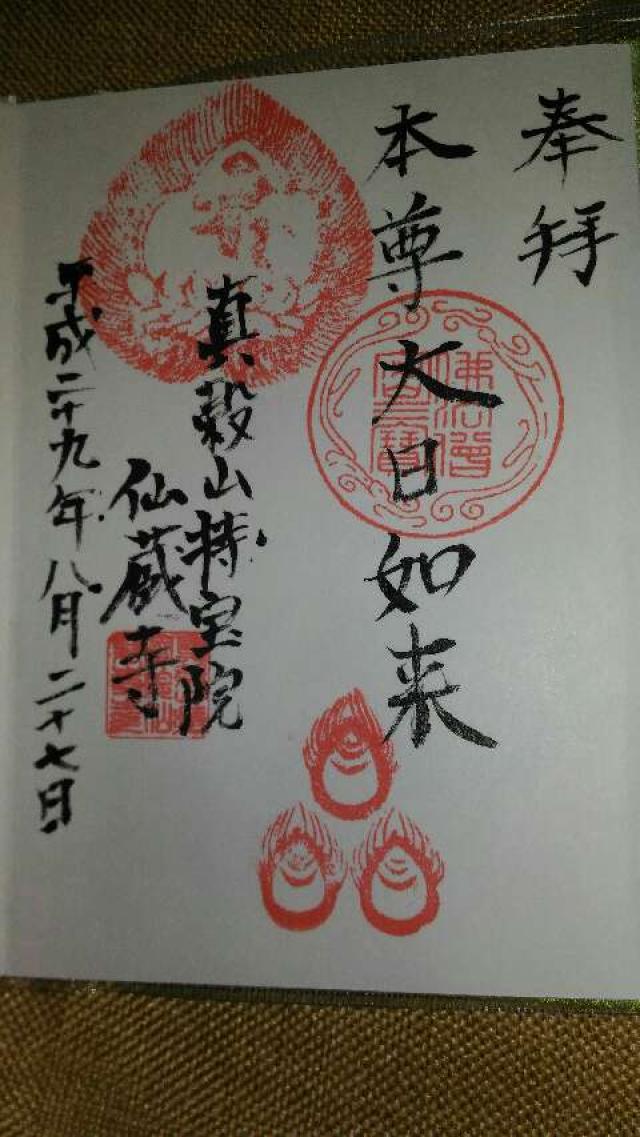 奉拝
本尊大日如来
真穀山持宝院
仙蔵寺
平成二十九年八月二十七日